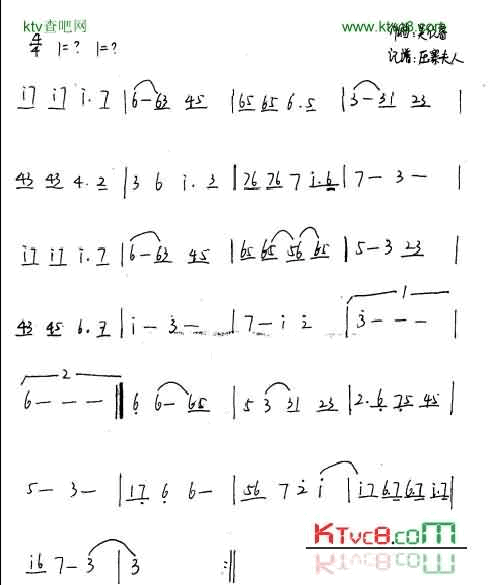 ktv查吧网 www.ktvc8.com
4/4 1=? 1=? 作曲:吴
记谱:压寨夫人
i7 i7 i.7 | 6-63 45 | 65 65 6.5 | 3-31 23 |
43 43 4.2 | 3 6 i.3 | 76 76 7 i.6 | 7-3- |
i7 i7 i.7 | 6-63 45 | 65 65 56 65 | 5-3 23 |
1
43 45 6.7 | i-3- | 7-i 2 | 3--- |
2
6--- || 6 6-65 | 5 3 31 23 | 2.6 75 45 |
5-3- | 17 6 6- | 56 7 2 i | i7 6.7 6.7 i.7 ||
KTvc8.com
i6 7-3 | 3 :||